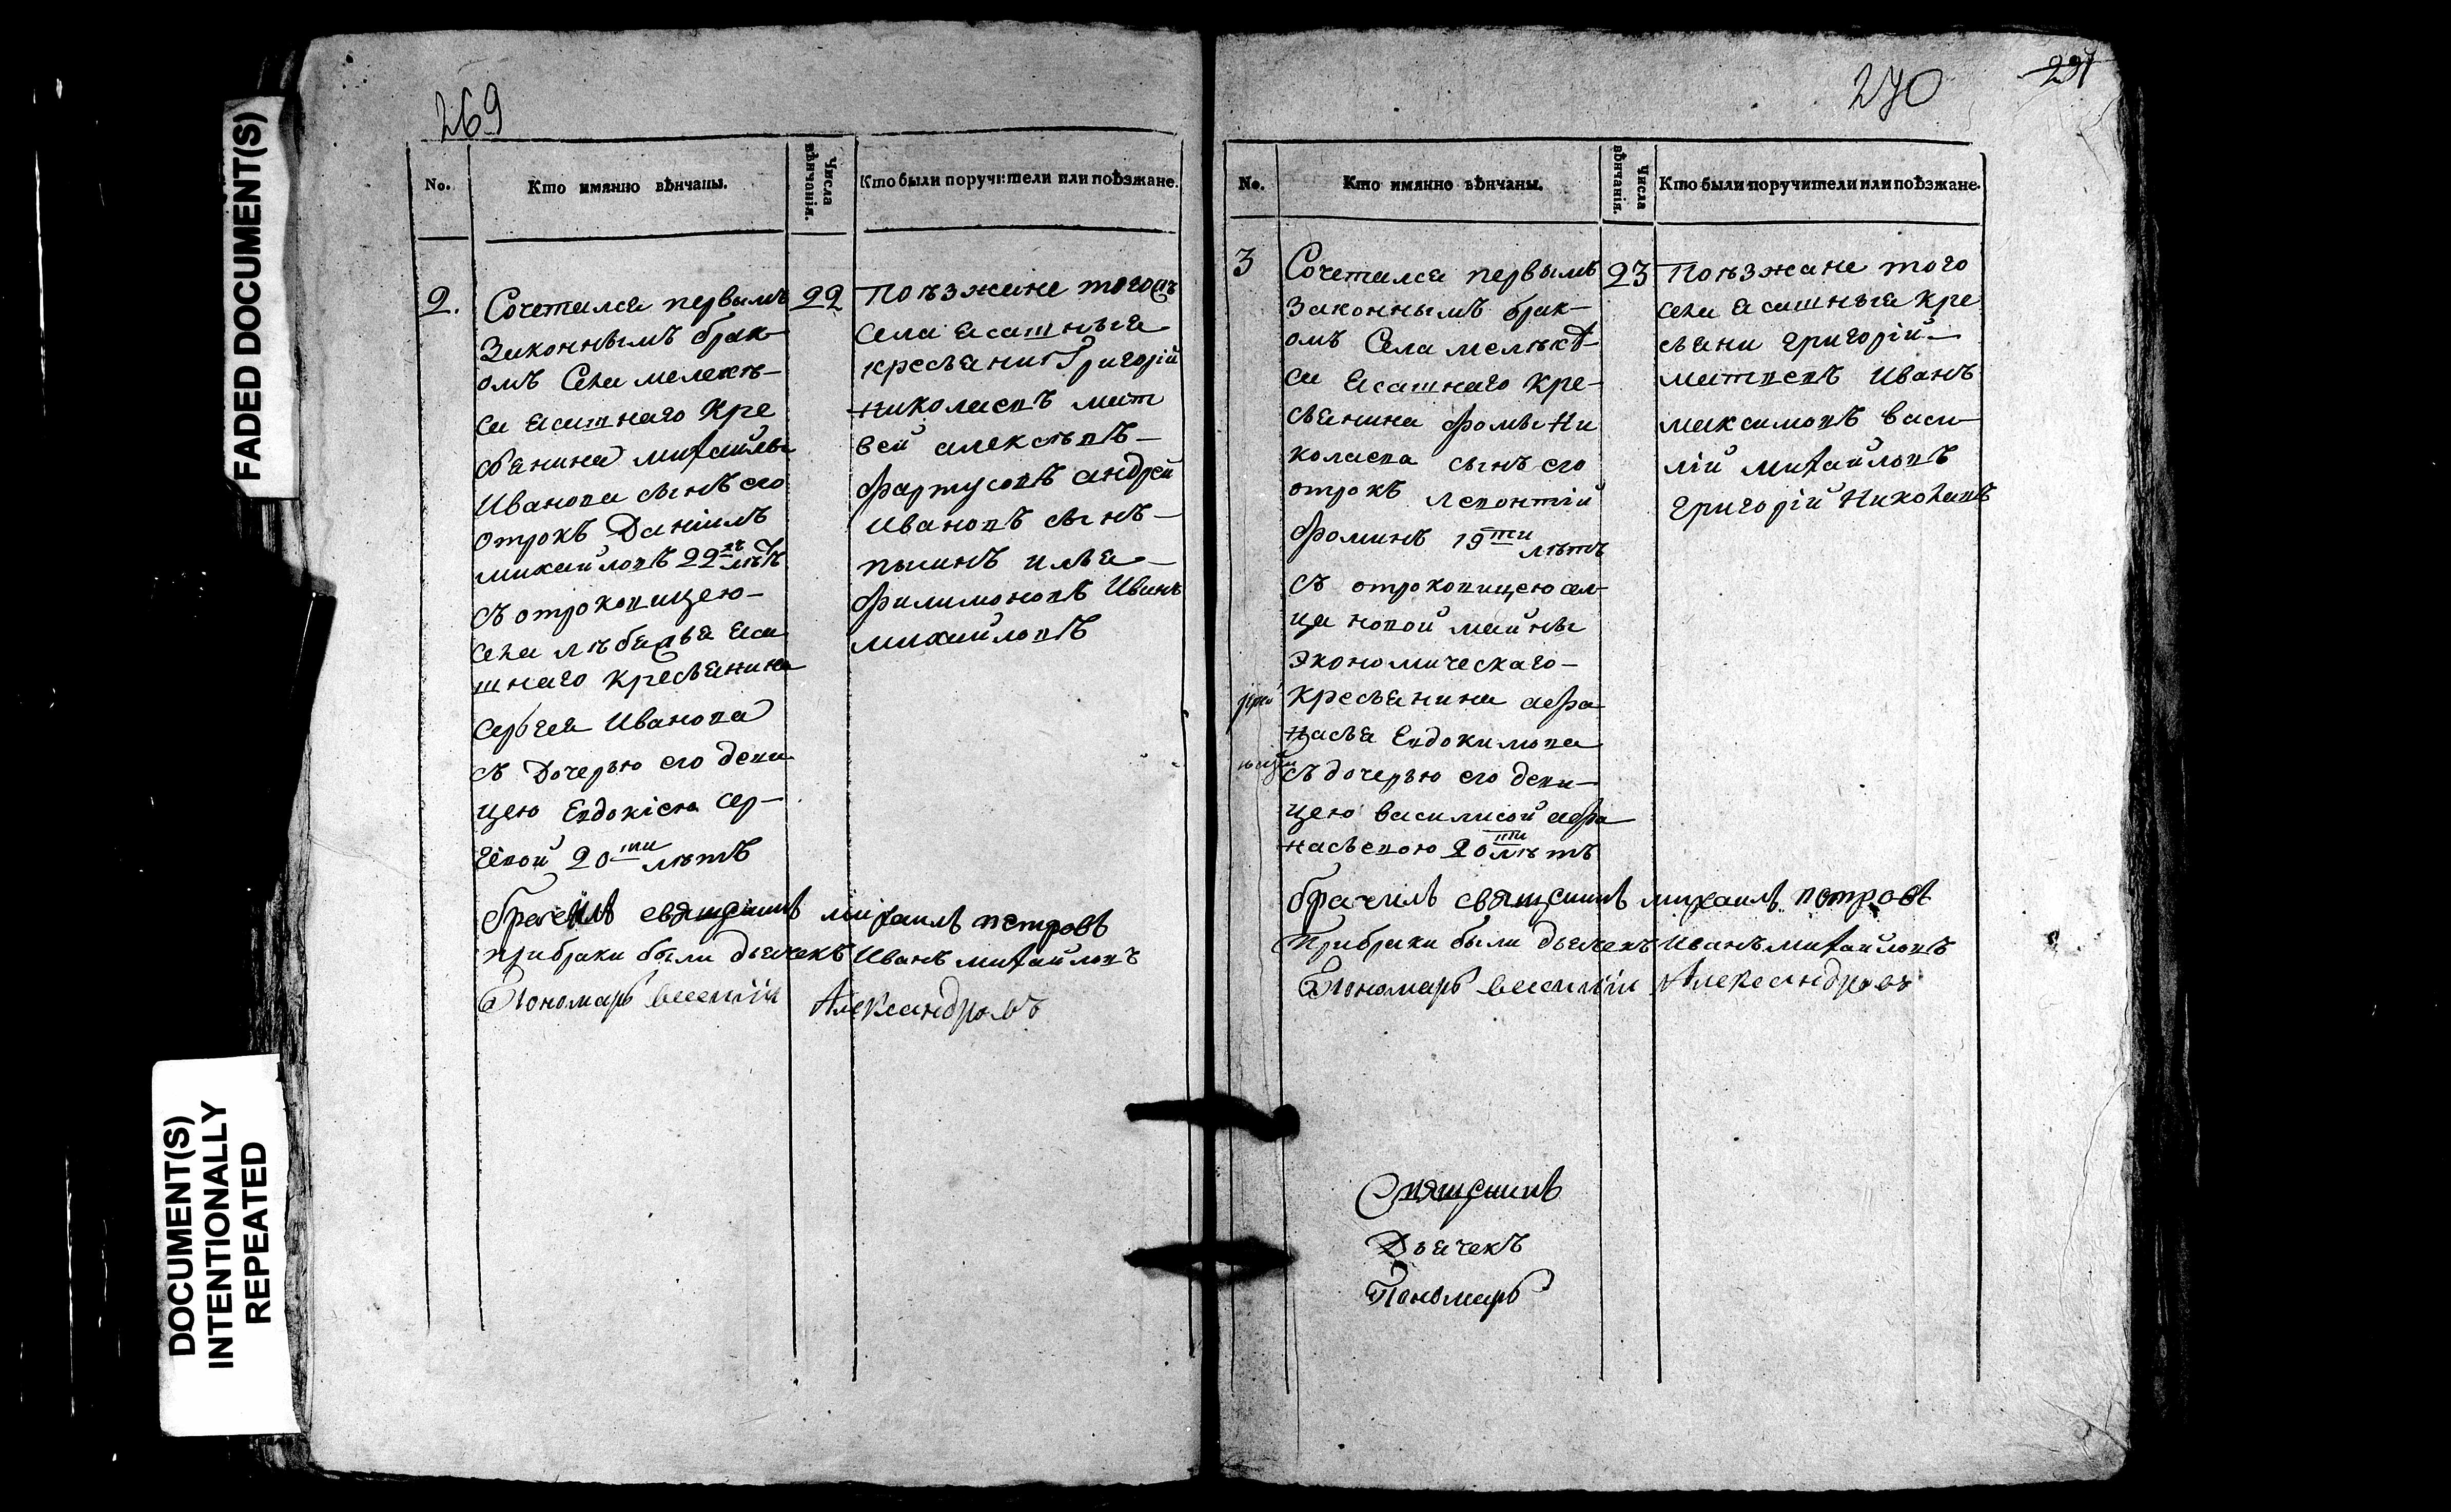 FADED DOCUMENT(S)
DOCUMENT(S)
INTENTIONALLY
REPEATED
269
No.
Кто имянно вѣнчаны.
Числа
вѣнчанія.
Кто были поручители или поѣзжане.
2.
Сочетался первымъ
законнымъ брак-
омъ Села мелекѣ-
са ясашнаго кре
стьянина михаилы
Иванова сынъ его
отрокъ Данiилъ
михайловъ 22 лѣтъ
съ отроковицею-
села лѣбяжья яса
шнаго крестьянина
Сергея Иванова
съ дочерью его деви
цею Евдокiею сер-
геiвой 20ти лѣтъ
22
Поѣзжане того
села ясашныя
кресьяни Григорiй
николаевъ мат
вей алексѣевъ-
фартусовъ андрей
Ивановъ сынъ-
пылинъ илья-
филимоновъ Иванъ
михайловъ
брачилъ священикъ михаилъ петровъ
при браки были дьячекъ Иванъ михайловъ
Пономарь василiй Александровъ
270
291
No.
Кто имянно вѣнчаны.
Числа
вѣнчанія.
Кто были поручители или поѣзжане.
3
Сочетался первымъ
законнымъ брак-
омъ Села мелѣкѣ-
са ясашнаго кре-
сьянина фомы Ни
колаева сынъ его
отрокъ леонтiй
фоминъ 19ти лѣтъ
съ отроковицею сел-
ца новой майны
экономическаго-
кресьянина афа
насья Евдокимова
съ дочерью его деви-
цею василисой афа
насьевою 20ти лѣтъ
23
Поѣзжане того
села ясашныя кре
сьяни григорiй-
матвеевъ Иванъ
максимовъ васи-
лiй михайловъ
григорiй Николаевъ
брачилъ священикъ михаилъ петровъ
При браки были дьячекъ Иванъ михайловъ
Пономарь василiй Александровъ
Священикъ
Дьячекъ
Пономарь